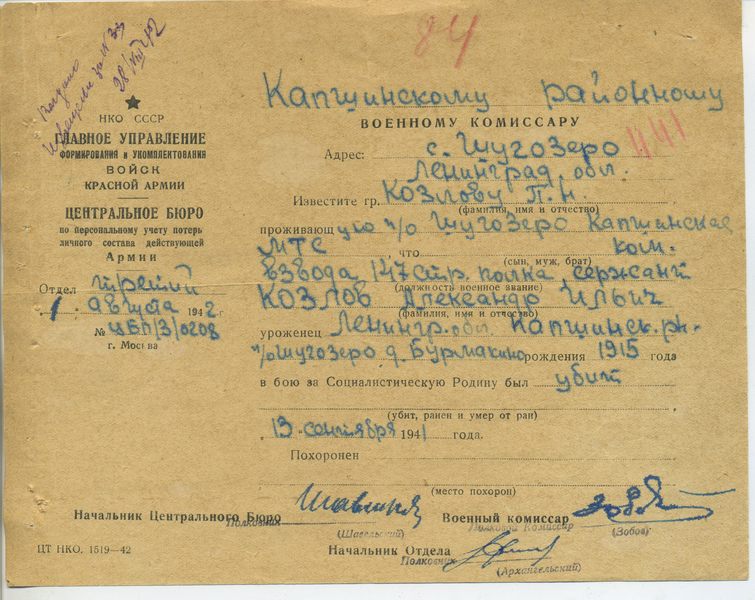 84
Выдано
28/VIII 42
НКО СССР
ГЛАВНОЕ УПРАВЛЕНИЕ
ФОРМИРОВАНИЯ и УКОМПЛЕКТОВАНИЯ
ВОЙСК
КРАСНОЙ АРМИИ
ЦЕНТРАЛЬНОЕ БЮРО
по персональному учету потерь
личного состава действующей
Армии
Отдел третий
1 августа 1942 г.
№ ЦБП/3/0208
г. Москва
Капшинскому районному
ВОЕННОМУ КОМИССАРУ
441
Адрес: с. Шугозеро
Ленинград. обл.
Известите гр. Козлову П. Н.
(фамилия, имя и отчество)
проживающую п/о Шугозеро Капшинская
МТС что ком.
(сын, муж, брат)
взвода 147 стр. полка сержант
(должность военное звание)
Козлов Александр Ильич
(фамилия, имя и отчество)
уроженец Ленингр. обл. Капшинск. р-н
п/о Шугозеро д. Бурмакино рождения 1915 года
в бою за Социалистическую Родину был убит
(убит, ранен и умер от ран)
13 сентября 1941 года.
Похоронен
(место похорон)
Начальник Центрального Бюро
Полковник
(Шавельский)
Военный комиссар
Полковой Комиссар
(Зобов)
Начальник Отдела
Полковник
(Архангельский)
ЦТ НКО. 1519—42